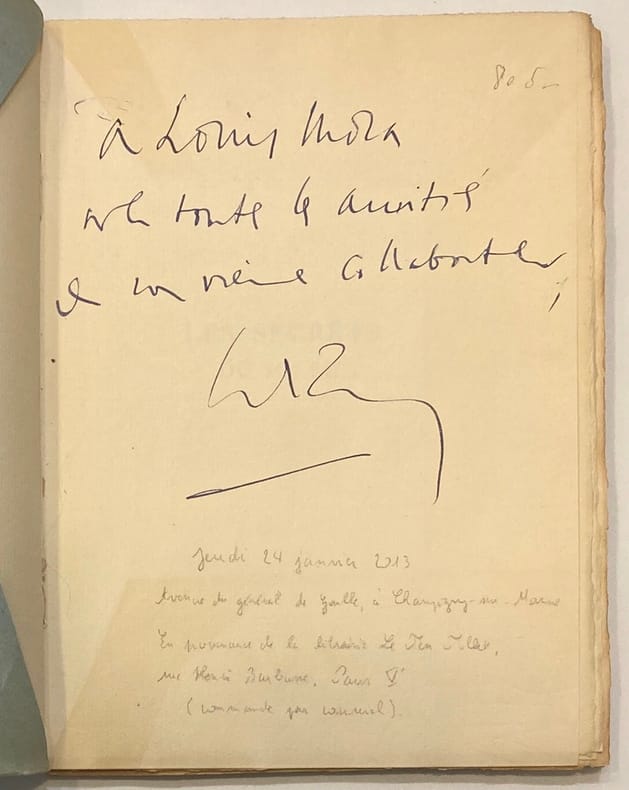 805-
A Louis Mora
avec toute l'amitié
de son vieux collaborateur,
Jeudi 24 janvier 2013
Avenue du général de Gaulle, à Champigny-sur-Marne
En provenance de la librairie Le Feu Follet,
rue Henri Barbusse, Paris V
(commande par courriel).